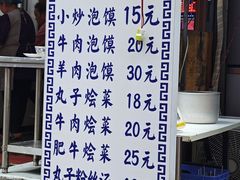 小炒泡馍 15元
牛肉泡馍 20元
羊肉泡馍 30元
丸子烩菜 18元
牛肉烩菜 20元
肥牛烩菜 25元
丸子粉丝汤